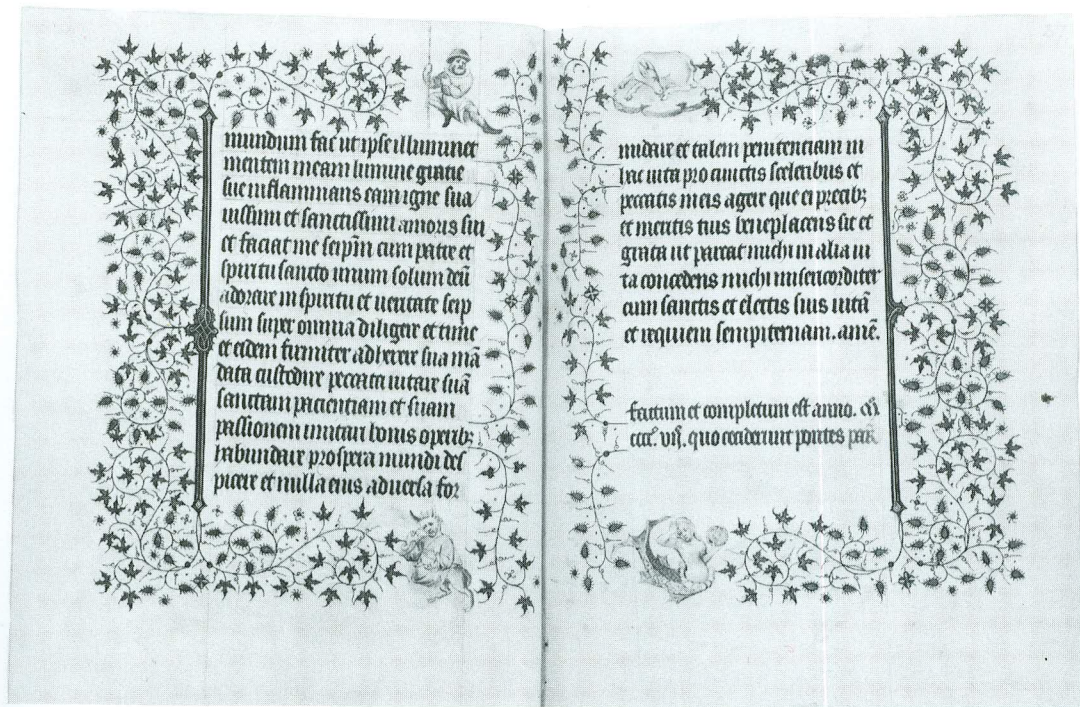 mundum fac ut ipse illuminet
mentem meam lumine gratie
sue inflammans eam igne sua
uissimi et sanctissimi amoris sui
et faciat me seip̄m cum patre et
spiritu sancto unum solum deū
adorare in spiritu et ueritate seip
sum super omnia diligere et time
et eidem firmiter adherere sua mā
data custodire peccata uitare suā
sanctam pacientiam et suam
passionem imitari bonis operibꝫ
habundare prospera mundi des
picere et nulla eius aduersa for
midare et talem penitenciam in
hac uita pro cunctis sceleribus et
peccatis meis agere que ei precibꝫ
et meritis tuis beneplacens sit et
grata ut pareat michi in alia ui
ta concedens michi misericorditer
cum sanctis et electis suis uitā
et requiem sempiternam. amē.
factum et completum est anno. m̊
cccc. vij. quo ceciderunt pontes par